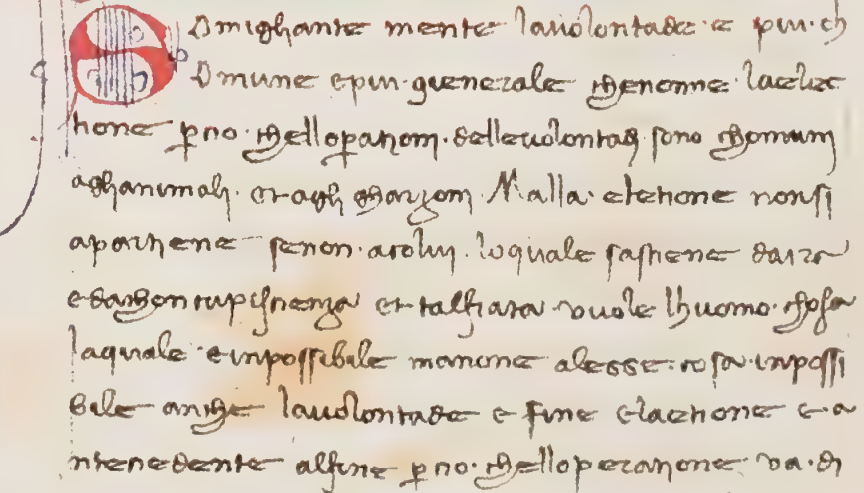 Somighante mente lauolontade · e piu · ch
omune epiu · gienerale chenonne · laelec
tione ꝑno · chelloparationi · dellevolontadi sono chomuni
aglianimali · et agli gharzoni · Malla · eletione nonsi
apartiene senon · acolui · loquale sastiene daira
edachoncupiscienzia et talfiata vuole lhuomo · chosa
laquale e inpossibile manone alesse · cosa · inpossi
bile anche lauolontade e fine elactione e a
ntecedente alfine ꝑno · chelloperatione va · di